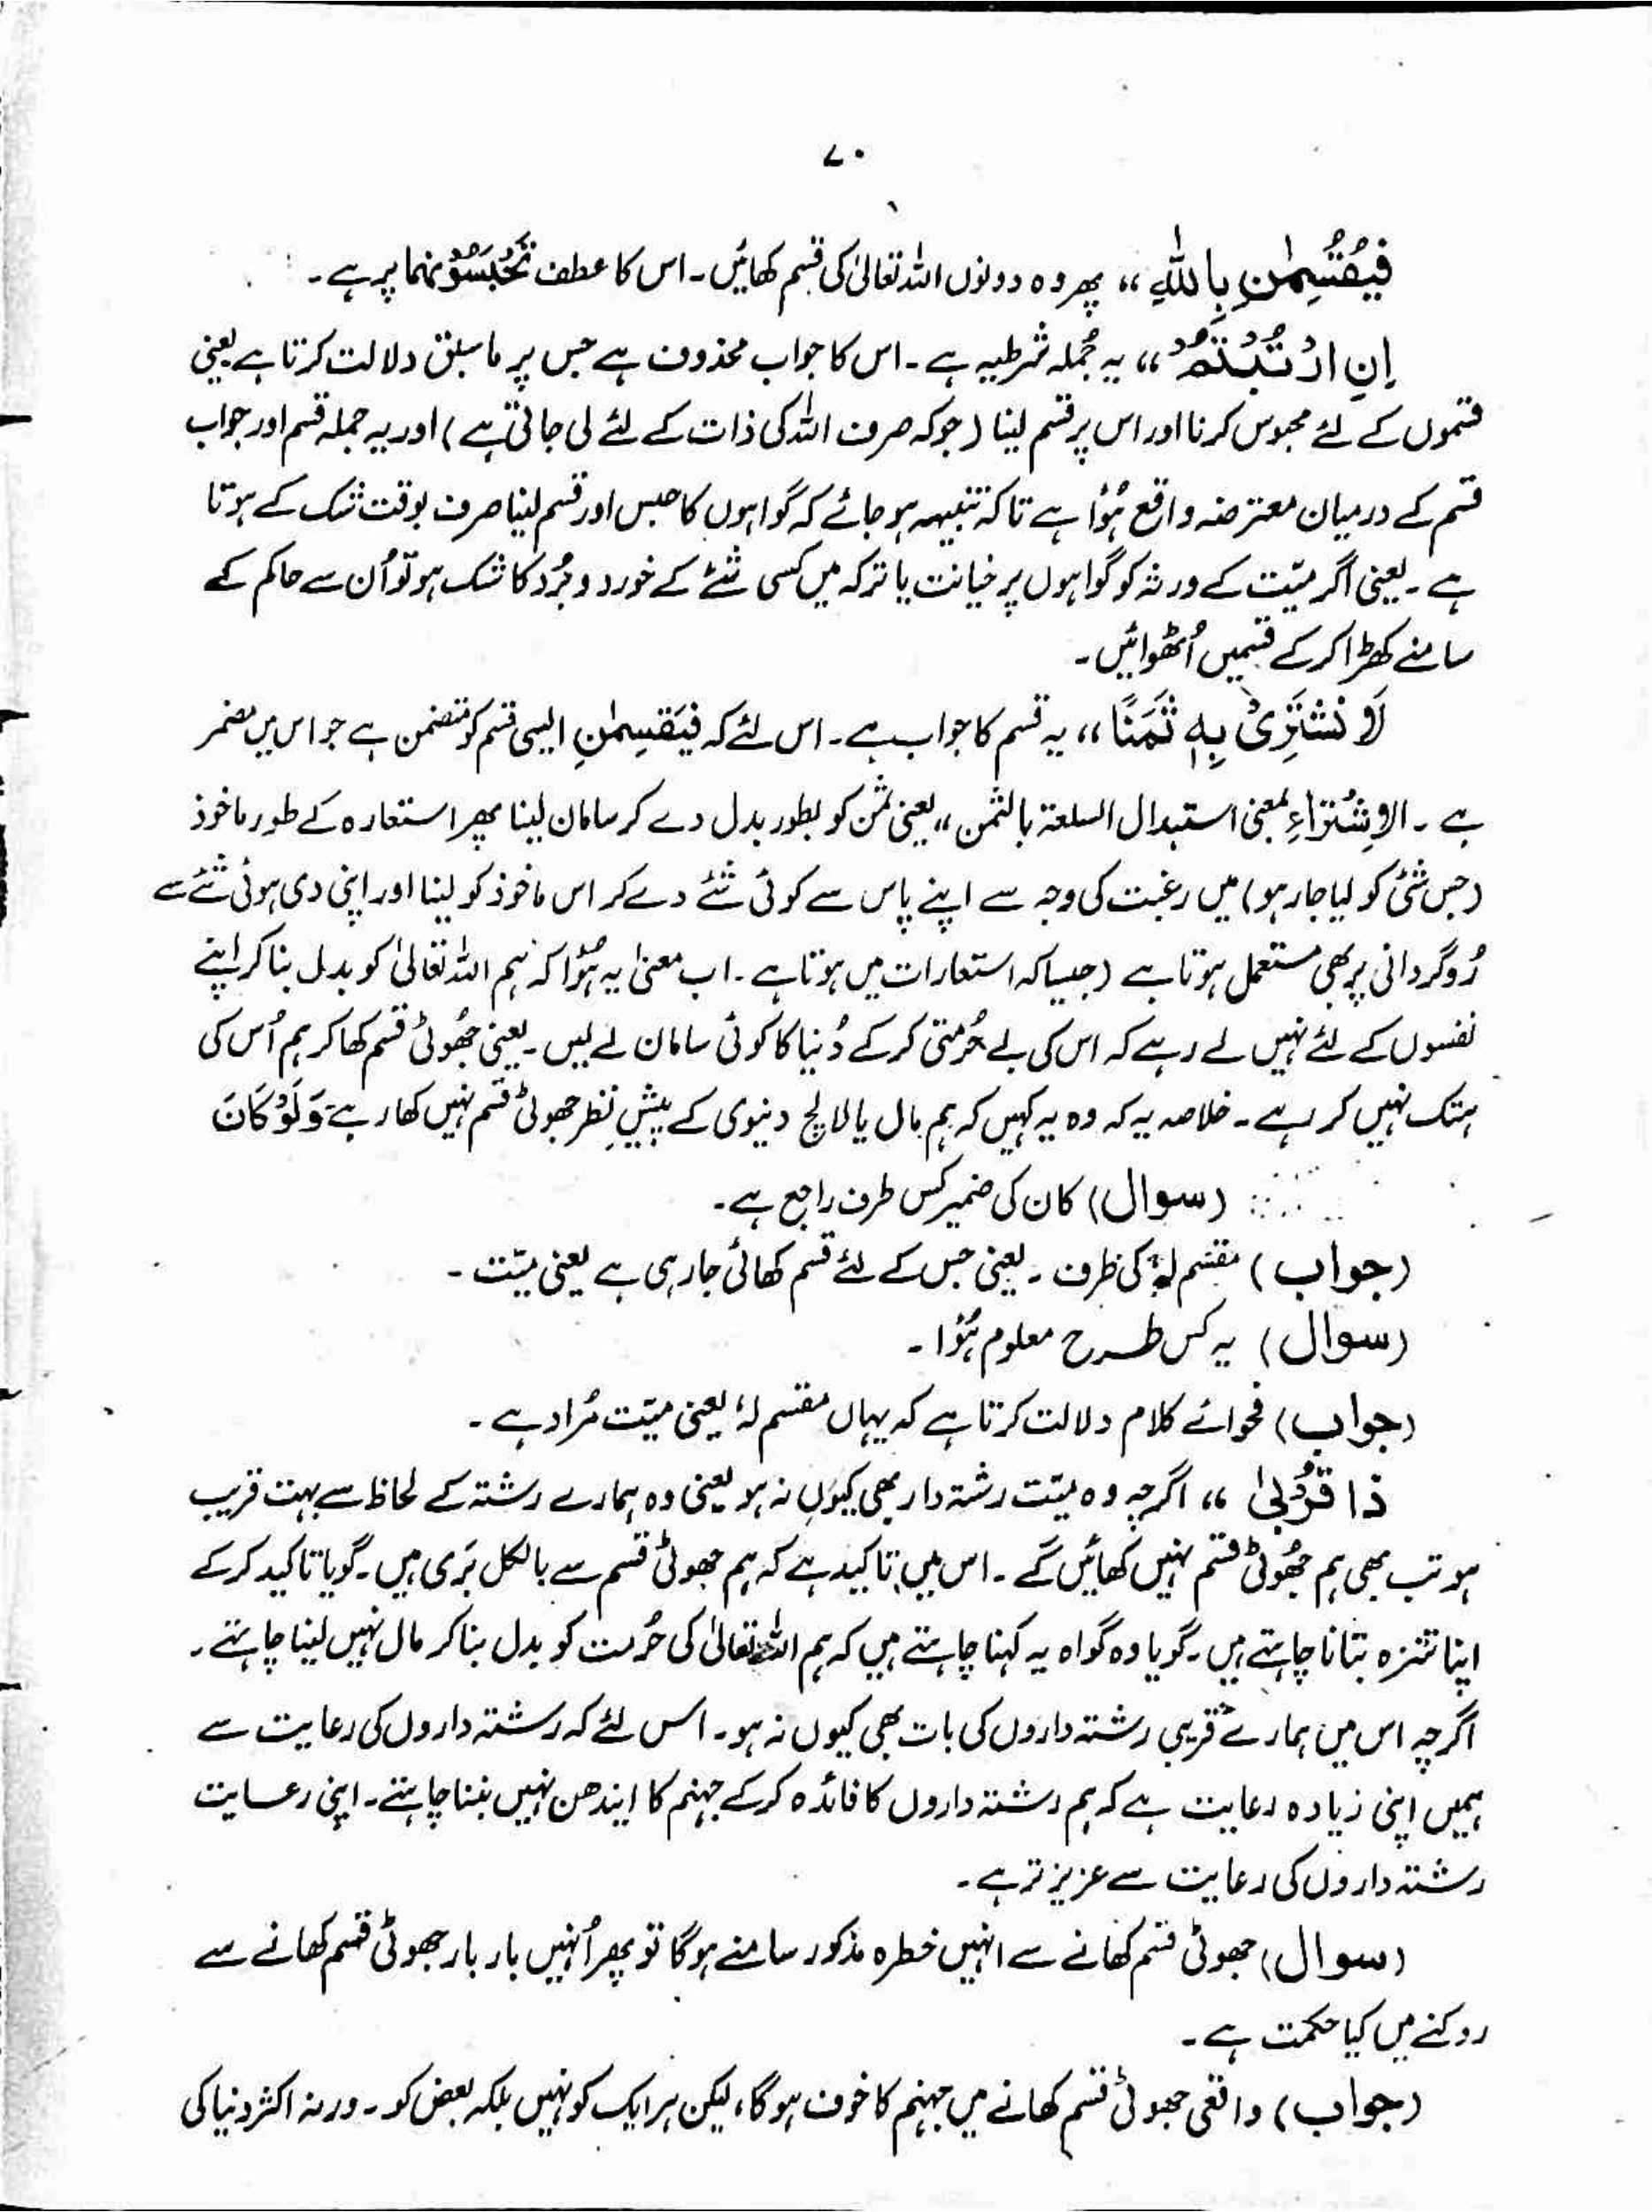 ۷۰
فَيُقْسِمٰنِ بِاللّٰهِ ،، پھر وہ دونوں اللہ تعالیٰ کی قسم کھائیں۔ اس کا عطف تَحْبِسُوْنَهُمَا پر ہے۔
اِنِ ارْتَبْتُمْ ،، یہ جُملہ شرطیہ ہے۔ اس کا جواب محذوف ہے جس پر ماسبق دلالت کرتا ہے یعنی
قسموں کے لئے محبوس کرنا اور اس پر قسم لینا (جو کہ صرف اللہ کی ذات کے لئے لی جاتی ہے) اور یہ جملہ قسم اور جواب
قسم کے درمیان معترضہ واقع ہُوا ہے تاکہ تنبیہہ ہو جائے کہ گواہوں کا حبس اور قسم لینا صرف بوقت شک کے ہوتا
ہے۔ یعنی اگر میّت کے ورثہ کو گواہوں پر خیانت یا ترکہ میں کسی شئے کے خورد و بُرد کا شک ہو تو اُن سے حاکم کے
سامنے کھڑا کر کے قسمیں اُٹھوائیں۔
لَا نَشْتَرِیْ بِهٖ ثَمَنًا ،، یہ قسم کا جواب ہے۔ اس لئے کہ فَيُقْسِمٰنِ ایسی قسم کو متضمن ہے جو اس میں مضمر
ہے۔ الاِشْتِرَاءِ بمعنی استبدال السلعۃ بالثمن ،، یعنی ثمن کو بطور بدل دے کر سامان لینا پھر استعارہ کے طور ماخوذ
(جس شئی کو لیا جار ہو) میں رغبت کی وجہ سے اپنے پاس سے کوئی شئے دے کر اس ماخوذ کو لینا اور اپنی دی ہوئی شئے سے
رُوگردانی پر بھی مستعمل ہوتا ہے (جیسا کہ استعارات میں ہوتا ہے۔ اب معنیٰ یہ ہُوا کہ ہم اللہ تعالیٰ کو بدل بنا کر اپنے
نفسوں کے لئے نہیں لے رہے کہ اس کی بے حُرمتی کر کے دُنیا کا کوئی سامان لے لیں۔ یعنی جُھوٹی قسم کھا کر ہم اُس کی
ہتک نہیں کر رہے۔ خلاصہ یہ کہ وہ یہ کہیں کہ ہم مال یا لالچ دنیوی کے پیشِ نظر جھوٹی قسم نہیں کھا رہے وَلَوْ کَانَ
(سوال) کان کی ضمیر کس طرف راجع ہے۔
(جواب) مقسم لہٗ کی طرف۔ یعنی جس کے لئے قسم کھائی جا رہی ہے یعنی میّت۔
(سوال) یہ کس طرح معلوم ہُوا۔
(جواب) فحوائے کلام دلالت کرتا ہے کہ یہاں مقسم لہٗ یعنی میّت مُراد ہے۔
ذَا قُرْبٰی ،، اگرچہ وہ میّت رشتہ دار بھی کیوں نہ ہو یعنی وہ ہمارے رشتہ کے لحاظ سے بہت قریب
ہو تب بھی ہم جُھوٹی قسم نہیں کھائیں گے۔ اس میں تاکید ہے کہ ہم جھوٹی قسم سے بالکل بَری ہیں۔ گویا تاکید کر کے
اپنا تنزہ بتانا چاہتے ہیں۔ گویا وہ گواہ یہ کہنا چاہتے ہیں کہ ہم اللہ تعالیٰ کی حُرمت کو بدل بنا کر مال نہیں لینا چاہتے۔
اگرچہ اس میں ہمارے قریبی رشتہ داروں کی بات بھی کیوں نہ ہو۔ اس لئے کہ رشتہ داروں کی رعایت سے
ہمیں اپنی زیادہ رعایت ہے کہ ہم رشتہ داروں کا فائدہ کر کے جہنم کا ایندھن نہیں بننا چاہتے۔ اپنی رعایت
رشتہ داروں کی رعایت سے عزیز تر ہے۔
(سوال) جھوٹی قسم کھانے سے انہیں خطرہ مذکور سامنے ہوگا تو پھر اُنہیں بار بار جھوٹی قسم کھانے سے
روکنے میں کیا حکمت ہے۔
(جواب) واقعی جھوٹی قسم کھانے میں جہنم کا خوف ہوگا، لیکن ہر ایک کو نہیں بلکہ بعض کو۔ ورنہ اکثر دنیا کی